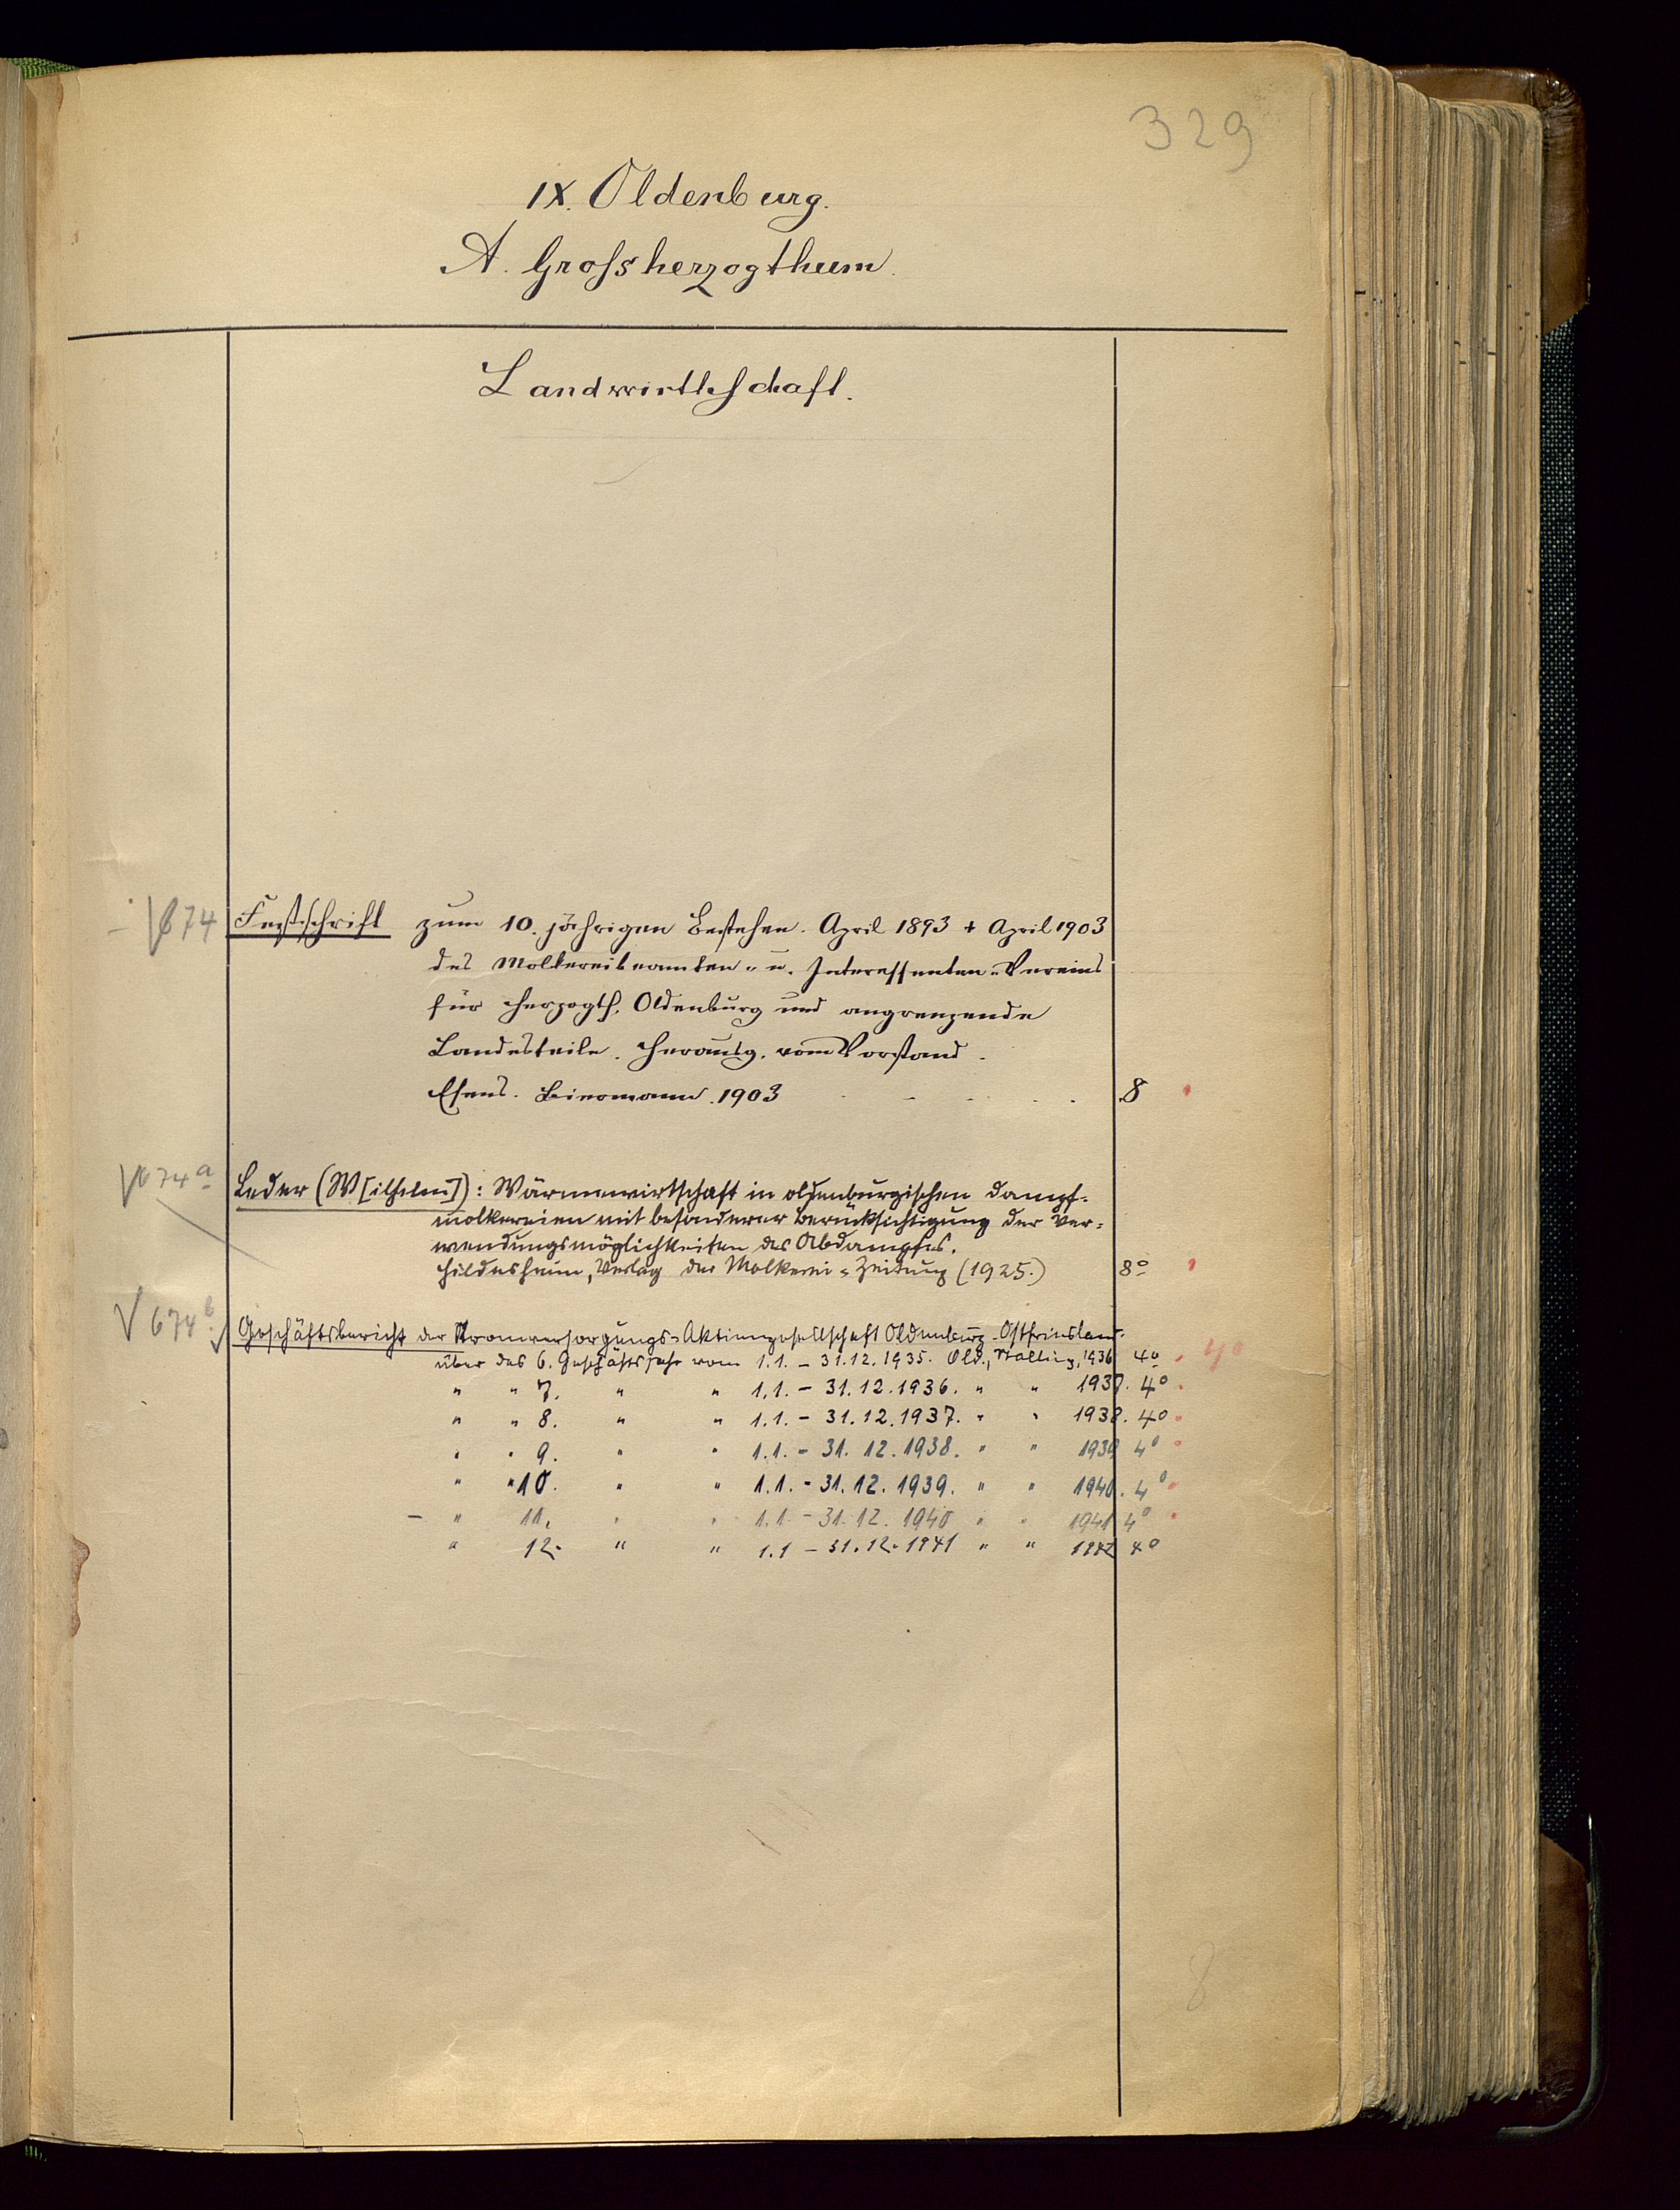 329
IX. Oldenburg.
A. Grossherzogthum.
Landwirthschaft.
674 Festschrift zum 10. jährigen Bestehen. April 1893 + April 1903
des Molkereibeamten- u. Interessenten-Vereins
für Herzogth. Oldenburg und angrenzende
Landesteile. Herausg. vom Vorstand.
Esens. Biermann. 1903 8
674a Leder (W[ilhelm]): Wärmewirtschaft in oldenburgischen Dampf-
molkereien mit besonderer Berücksichtigung der Ver-
wendungsmöglichkeiten des Abdampfes.
Hildesheim, Verlag der Molkerei-Zeitung (1925.) 8°
674b Geschäftsbericht der Stromversorgungs-Aktiengesellschaft Oldenburg-Ostfriesland.
über das 6. Geschäftsjahr vom 1.1. - 31.12.1935. Old., Stalling, 1936 4° 4°
" " 7. " " 1.1. - 31.12.1936. " " 1937. 4°
" " 8. " " 1.1. - 31.12.1937. " " 1938. 4°
" " 9. " " 1.1. - 31.12.1938. " " 1939 4°
" " 10. " " 1.1. - 31.12.1939. " " 1940. 4°
- " 11. " " 1.1. - 31.12.1940 " " 1941 4°
" 12. " " 1.1 - 31.12.1941 " " 1942 4°
8